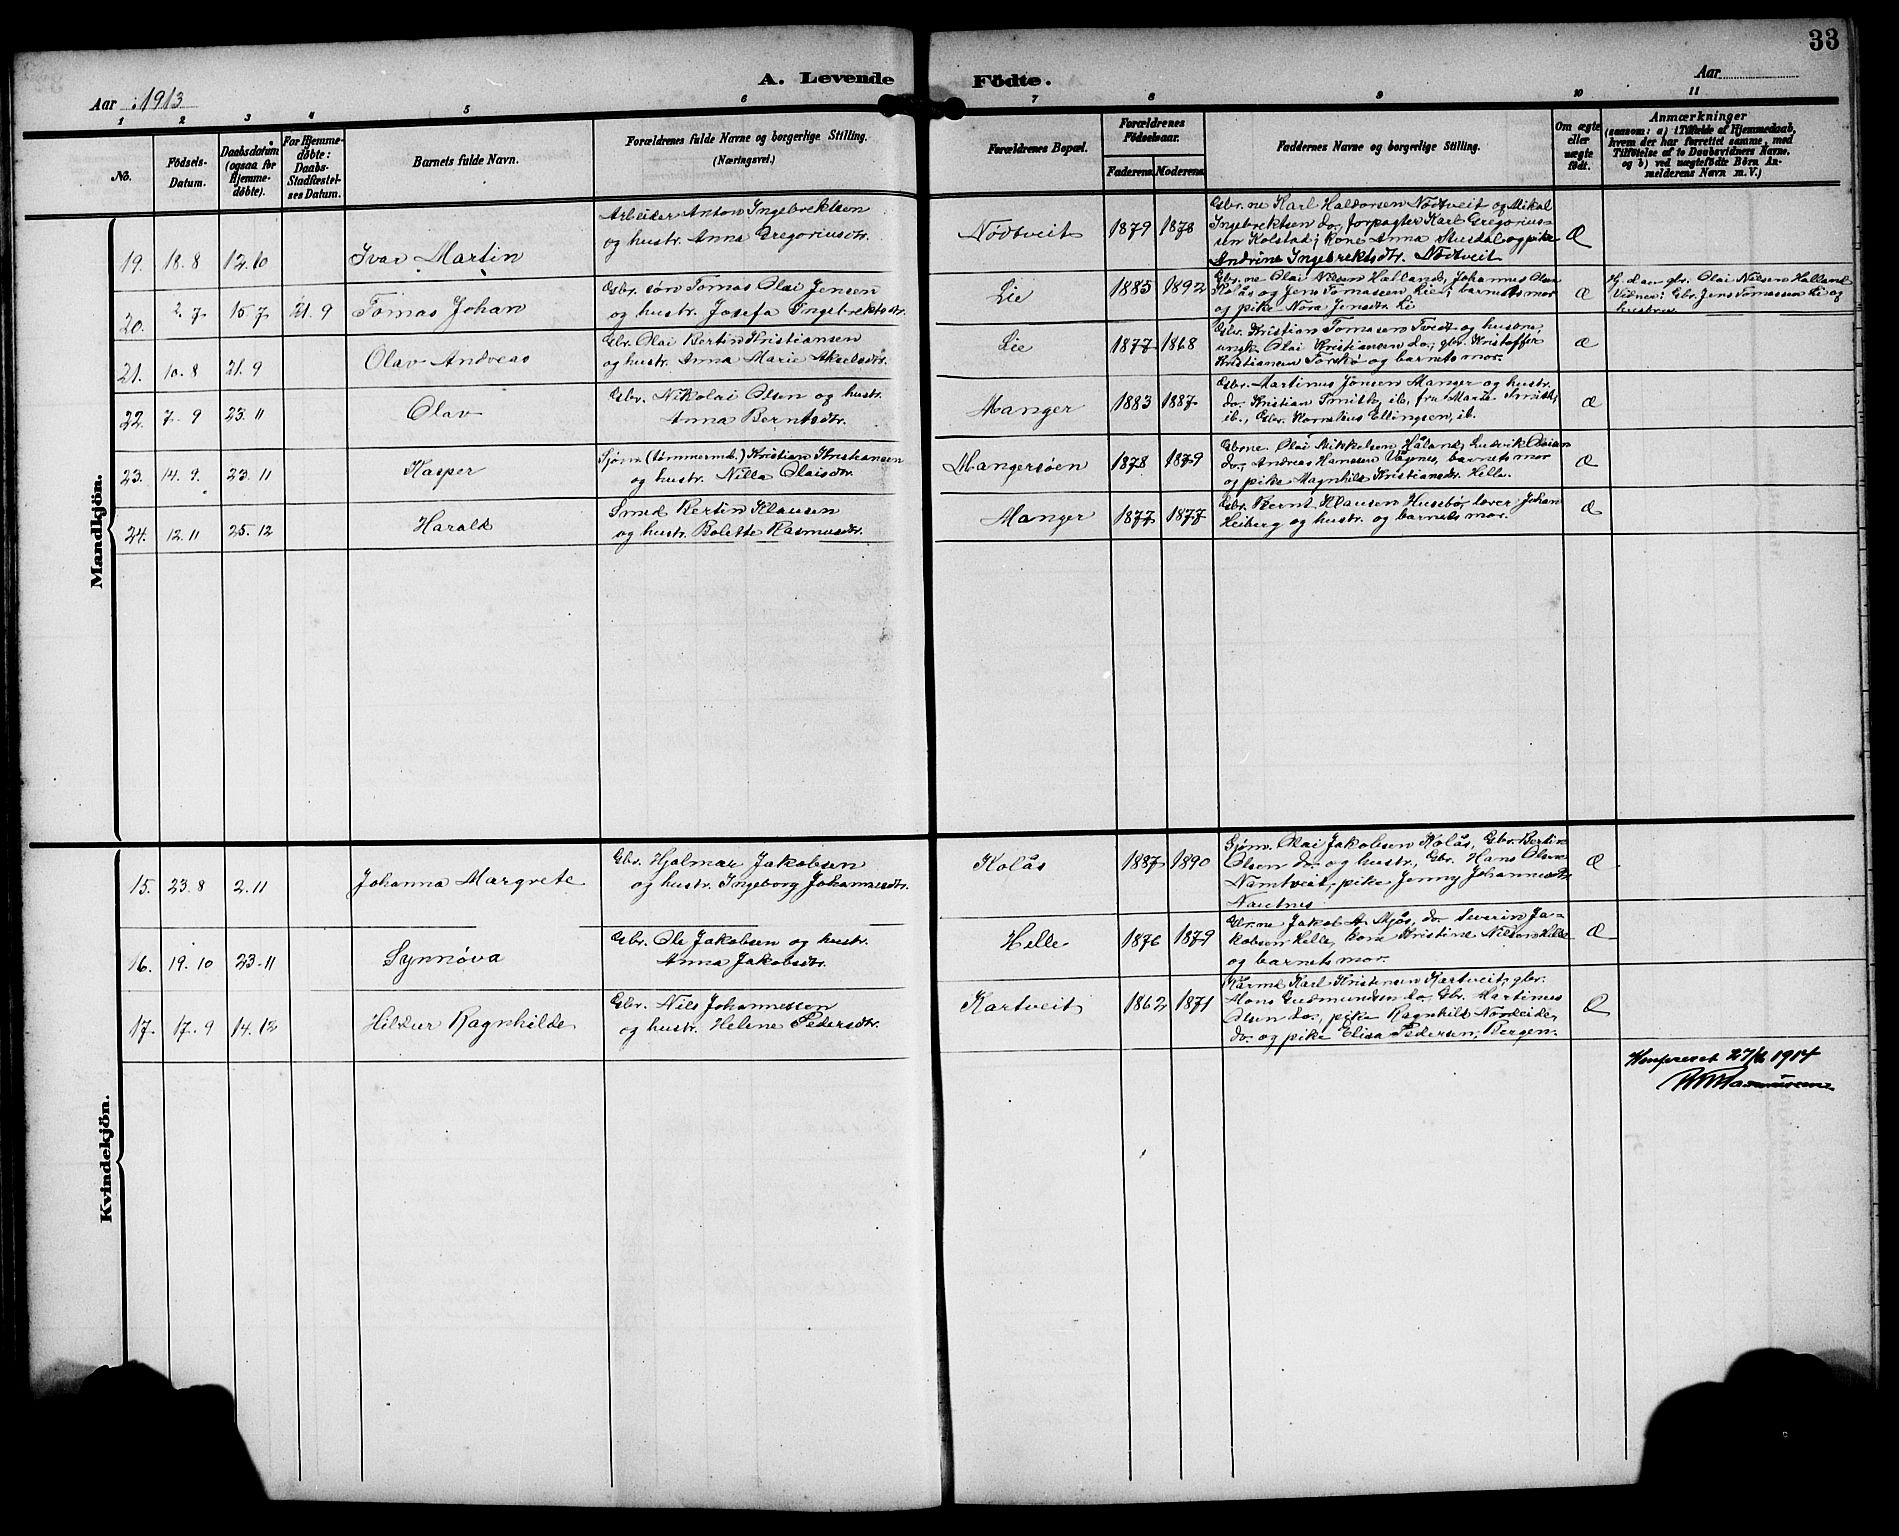 33
A. Levende Födte.
Aar 1913
Aar
1 2 3 4 5 6 7 8 9 10 11
No.
Födsels-
Datum.
Daabsdatum
(ogsaa for
Hjemme-
döbte).
For Hjemme-
döbte:
Daabs-
Stadfæstel-
ses Datum.
Barnets fulde Navn.
Forældrenes fulde Navne og borgerlige Stilling.
(Næringsvei.)
Forældrenes Bopæl.
Forældrenes
Födselsaar.
Faderens. Moderens.
Faddernes Navne og borgerlige Stilling.
Om ægte
eller
uægte
födt.
Anmærkninger
(saasom: a) i Tilfælde af Hjemmedaab,
hvem der har forrettet samme, med
Tilföielse af to Daabsvidners Navne,
og b) ved uægtefödte Börn An-
melderens Navn m. V.)
Mandkjön.
19. 18.8 12.10 Ivar Martin
Arbeider Anton Ingebrektsen
og hustr. Anna Gregoriusdtr.
Nödtveit 1879 1878
Gbr.ne Karl Haldorsen Nödtveit og Mikal
Ingebrektsen do, forpagter Karl Gregorius-
sen Kolstad; kone Anna Stusdal og pike
Andrine Ingebrektsdtr. Nödtveit
Æ
20. 2.7 15.7 21.9 Tomas Johan
Gbr. søn Tomas Olai Jensen
og hustr. Josefa Ingebrektsdtr.
Lie 1885 1892
Gbr.ne Olai Nilsen Halland, Johannes Olsen
Kolås og Jens Tomassen Lie; barnets mor
og pike Nora Jensdtr. Li
Æ
Hj. d. av gbr. Olai Nilsen Halland
Vidner: Gbr. Jens Tomassen Li og
hustru
21. 10.8 21.9 Olav Andreas
Gbr. Olai Bertin Kristiansen
og hustr. Anna Marie Akselsdtr.
Lie 1877 1868
Gbr. Kristian Tomasen Tveit og hustru,
ungk. Olai Kristiansen do, gbr. Kristoffer
Kristiansen Toskø og barnets mor.
Æ
22. 7.9 23.11 Olav
Gbr. Nikolai Olsen og hustr.
Anna Berntsdtr.
Manger 1883 1887
Gbr. Martinus Jonsen Manger og hustr.
do, Kristian Smith, ib, fru Marie Smith,
ib., Gbr. Kornelius Ellingsen, ib.
Æ
23. 14.9. 23.11 Kasper
Sjøm (tømmerm.) Kristian Kristiansen
og hustr. Nilla Olaisdtr.
Mangersøen 1878 1879
Gbr.ne Olai Mikkelsen Håland, Ludvik Olsen
do, Andreas Hansen Vågnes, barnets mor
og pike Magnhild Kristiansdtr. Helle.
Æ
24. 12.11 25.12 Harald
Smed Bertin Klausen
og hustr. Bolette Rasmusdtr.
Manger 1877 1877
Gbr. Bernt Klausen Husebø, lærer Johan
Heiberg og hustr. og barnets mor.
Æ
Kvindekjön.
15. 23.8 2.11 Johanna Margrete
Gbr. Hjalmar Jakobsen
og hustr. Ingeborg Johannesdtr.
Kolås 1887 1890
Sjøm. Olai Jakobsen Kolås, Gbr. Bertin
Olsen do. og hustr., Gbr. Hans Olsen
Namtveit, pike Jenny Johannesdtr.
Nautnes
Æ
16. 19.10 23.11 Synnøva
Gbr. Ole Jakobsen og hustr.
Anna Jakobsdtr.
Helle 1876 1879
Gbr.ne Jakob A. Mjøs, do. Severin Ja-
kobsen Helle, kone Kristine Nilsen Helle
og barnets mor.
Æ
17. 17.9 14.12 Hildur Ragnhilde
Gbr. Nils Johannessen
og hustr. Helene Pedersdtr.
Kartveit 1862 1871
Kårm. Karl Kristensen Kartveit, gbr.
Mons Gudmundsen do, Gbr. Martinus
Olsen do, pike Ragnhild Nordeide,
do. og pike Elisa Pedersen, Bergen.
Æ
Konfereret 27/6 1914